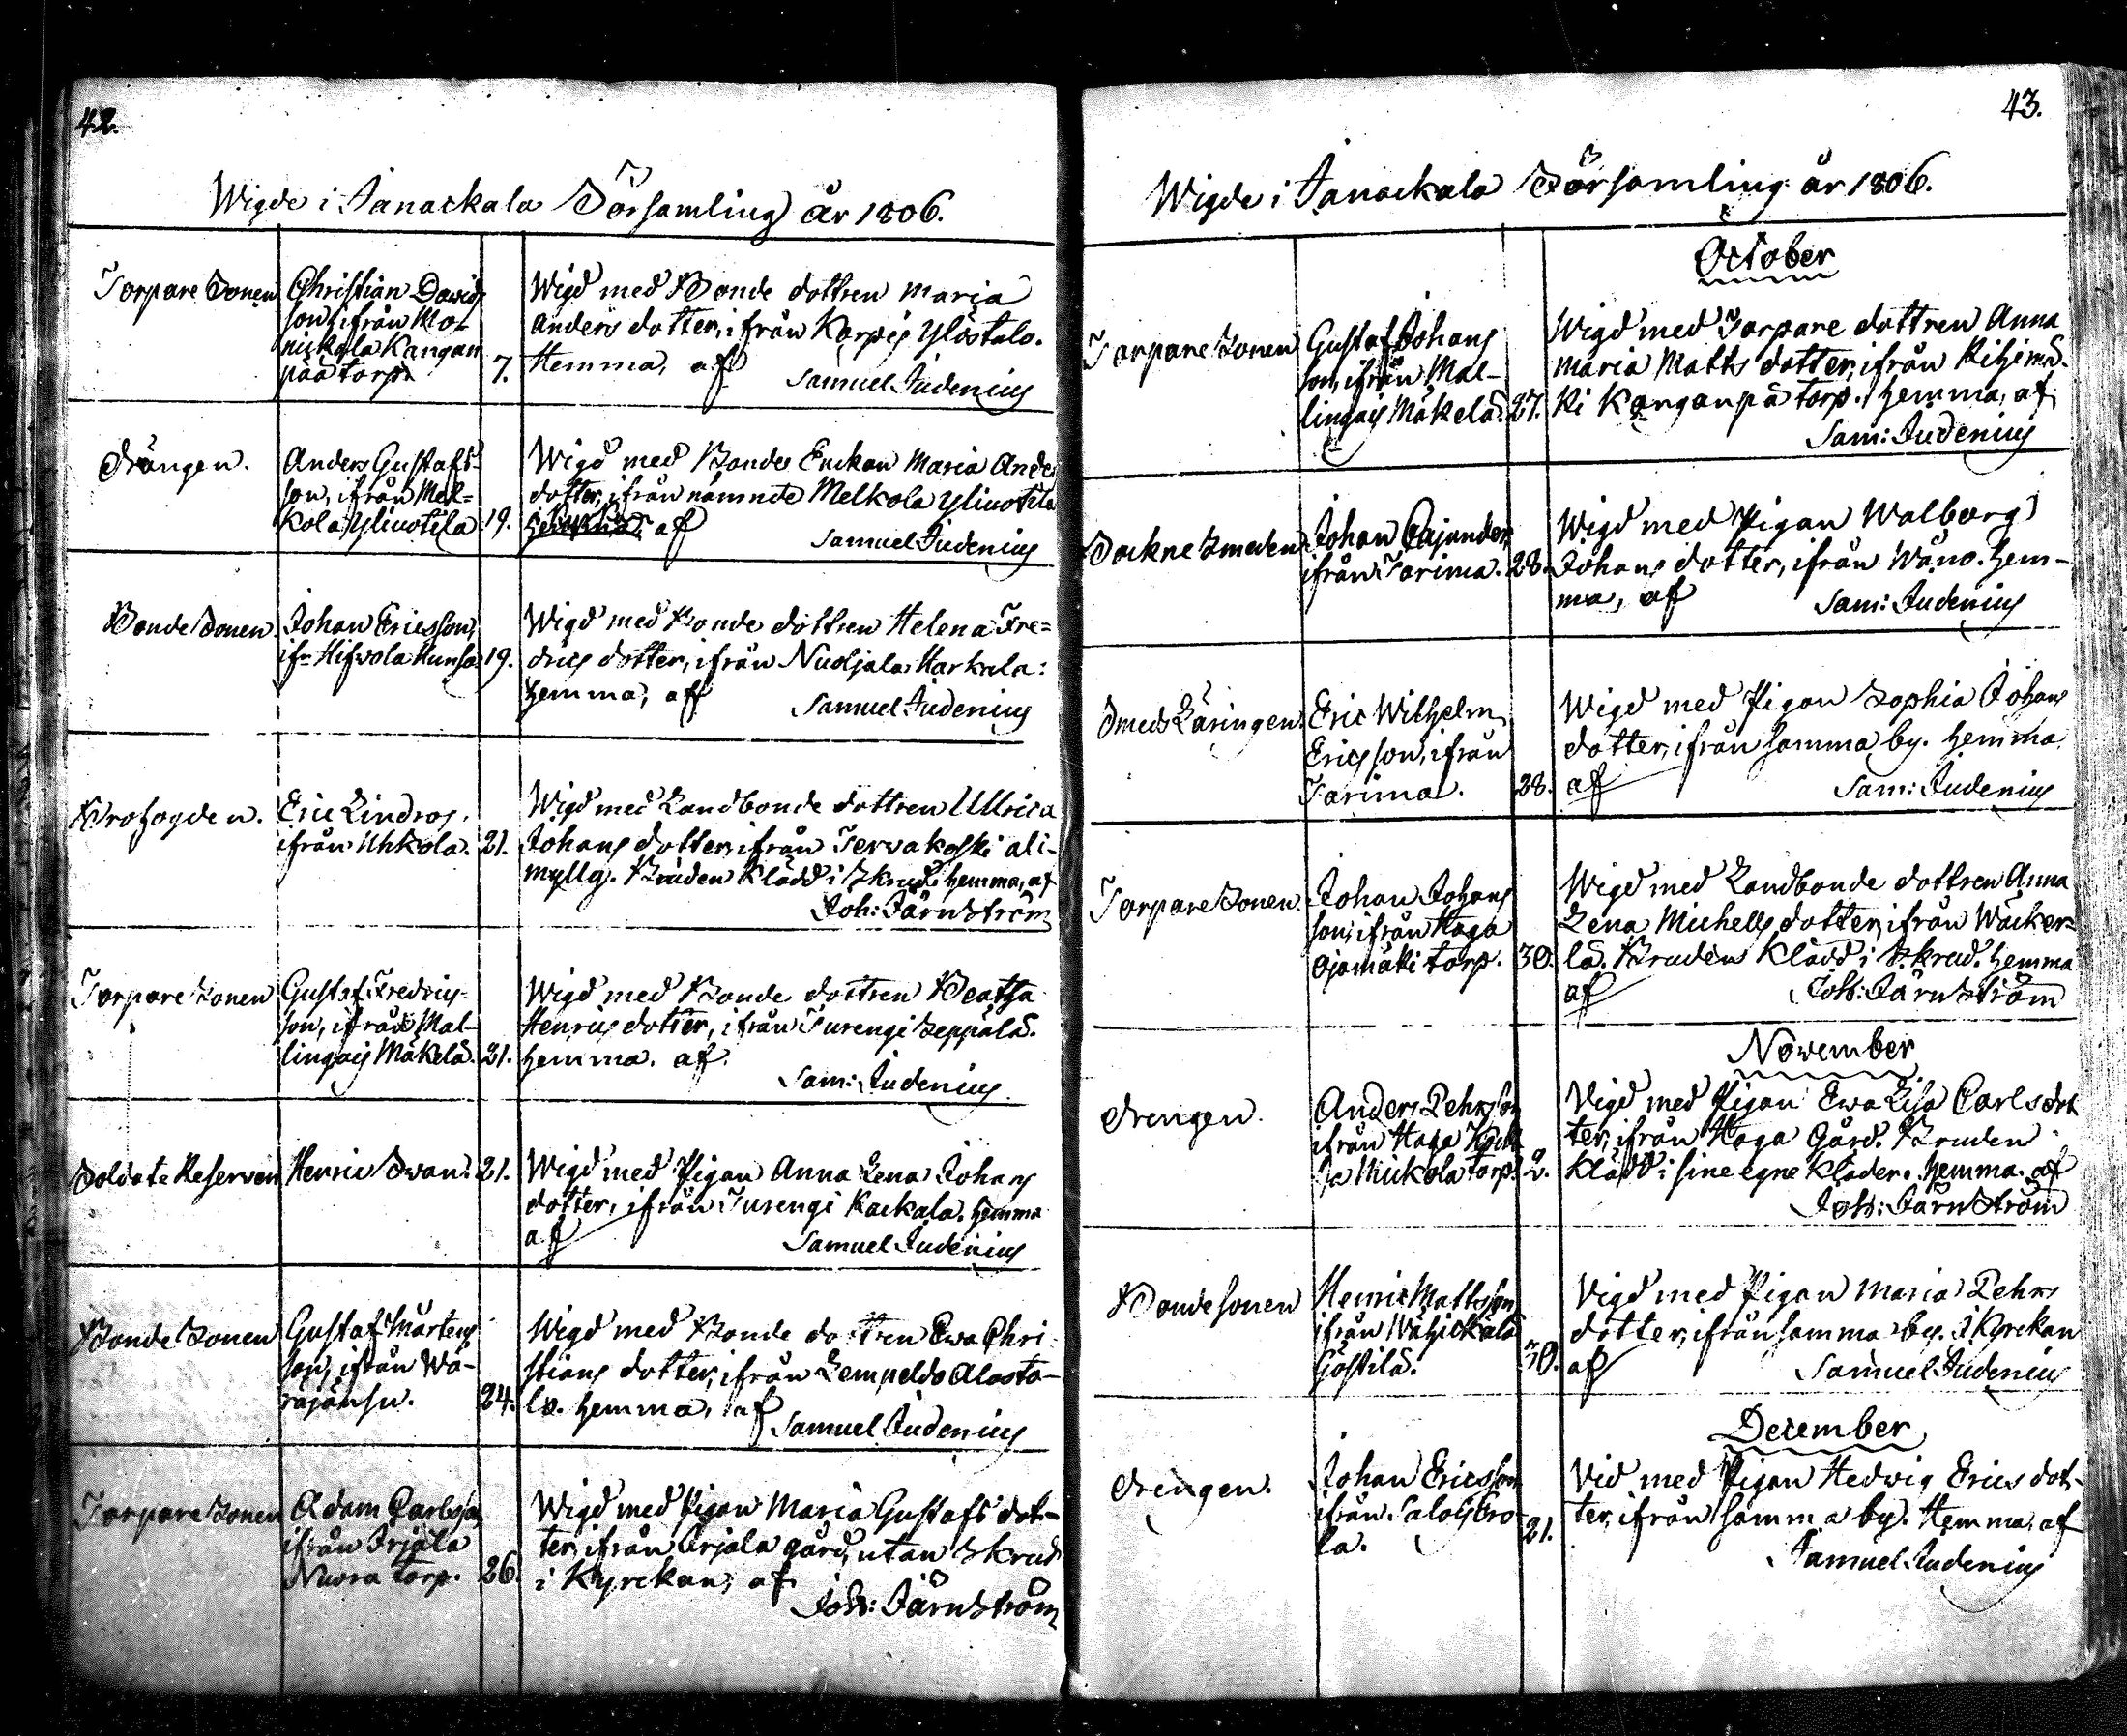 42.
Wigde i Janackala Församling år 1806.
Torpare Sonen
Christian Davids
son, ifrån Mo-
nikala Kangan
pää torp.
7.
Wigd med Bonde dottren Maria
Anders dotter, ifrån Karpis Ylöstalo.
Hemma, af
Samuel Judenius
Drängen.
Anders Gustafs-
son, ifrån Mel-
kola Ylinotila
19.
Wigd med Bonde Enckan Maria Anders
dotter, ifrån nämnde Melkola Ylinotila
af
Samuel Judenius
Bonde Sonen
Johan Ericsson,
if:n Hifvola Hunsa
19.
Wigd med Bonde dottren Helena Fre=
drics dotter, ifrån Nudjala Harkala:
hemma, af
Samuel Judenius
Profogden.
Eric Lindros,
ifrån Uhkola.
21.
Wigd med Landbonde dottren Ulrica
Johans dotter, ifrån Tervakoski ali-
mylly. Bruden klädd i Skrud. hemma, af
Joh: Järnström
Torpare Sonen
Gustaf Fredrics-
son, ifrån Mal-
lingais Mäkelä.
21.
Wigd med Bonde dottren Beatha
Henrics dotter, ifrån Turengi Seppälä.
hemma. af
Sam: Judenius
Soldate Reserven
Henric Swan.
21.
Wigd med Pigan Anna Lena Johans
dotter, ifrån Turengi Kackala. hemma
af
Samuel Judenius
Bonde Sonen
Gustaf Mårtens
son, ifrån Wä-
räjänsu.
24.
Wigd med Bonde dottren Ewa Chri-
stians dotter, ifrån Lempeldo Alasta-
lo. hemma, af
Samuel Judenius
Torpare Sonen
Adam Carlsson
ifrån Irjala
Nuora torp.
26.
Wigd med Pigan Maria Gustafs dot-
ter, ifrån Irjala gård, utan Skrud
i Kyrckan, af
Joh: Järnström
43.
Wigde i Janackala Församling år 1806.
October
Torpare Sonen
Gustaf Johans
son, ifrån Mal-
lingais Mäkelä.
27.
Wigd med Torpare dottren Anna
Maria Matts dotter, ifrån Rihimä-
ki Kanganpä torp. hemma, af
Sam: Judenius
Sockne Smeden
Johan Cajander,
ifrån Tarima.
28.
Wigd med Pigan Walborg
Johans dotter, ifrån Wäno. hem-
ma, af
Sam: Judenius
Smeds Läringen.
Eric Wilhelm
Ericsson, ifrån
Tarima.
28.
Wigd med Pigan Sophia Johans
dotter, ifrån samma by. hemma
af
Sam: Judenius
Torpare Sonen.
Johan Johans
son, ifrån Haga
Ojamäki torp.
30.
Wigd med Landbonde dottren Anna
Lena Michells dotter, ifrån Wäcker-
lä. Bruden klädd i Skrud. hemma
af
Joh: Järnström
November
Drengen.
Anders Pehrsson
ifrån Haga
Mickola torp.
2.
Vigd med Pigan Ewa Lisa Carlsdot
ter, ifrån Haga Gård. Bruden
klädd i sine egne kläder. hemma. af
Joh: Järnström
Bondesonen
Henric Mattsson
ifrån Wähickälä
Göstilä.
30.
Vigd med Pigan Maria Pehrs
dotter, ifrån samma by. i Kyrckan
af
Samuel Judenius
December
Drengen.
Johan Ericsson
ifrån Salois
la.
21.
Vid med Pigan Hedwig Erics dot-
ter, ifrån samma by. Hemma, af
Samuel Judenius